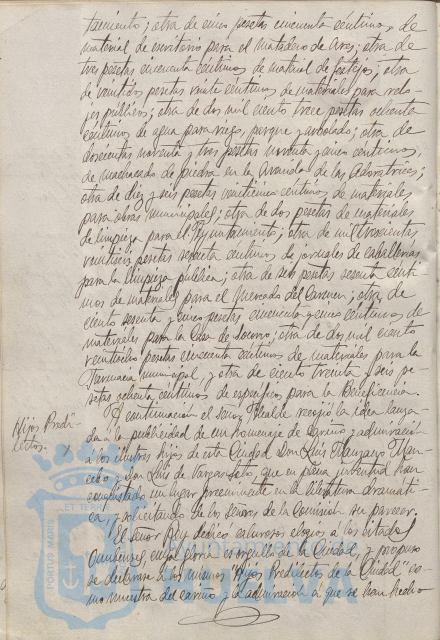 tamiento; otra de cinco pesetas cincuenta céntimos, de
material de escritorio para el Matadero de Aves; otra de
tres pesetas cincuenta céntimos de material de festejos; otra
de veintidos pesetas veinte céntimos de materiales para relo-
jes públicos; otra de dos mil ciento trece pesetas ochenta
céntimos de agua para riego, parque y arbolado; otra de
doscientas noventa y tres pesetas noventa y cinco céntimos,
de machacado de piedra en la Avenida de las Adoratrices;
otra de diez y seis pesetas veinticinco céntimos de materiales
para obras municipales; otra de dos pesetas de materiales
de limpieza para el Ayuntamiento; otra de mil trescientas
pesetas sesenta céntimos de jornales de caballerías
para la limpieza pública; otra de seis pesetas sesenta cénti-
mos de materiales para el Mercado del Carmen; otra de
ciento sesenta y cinco pesetas cincuenta y cinco céntimos de
materiales para la Casa de Socorro; otra de dos mil ciento
pesetas cincuenta céntimos de materiales para la
Farmacia municipal, y otra de ciento treinta y seis pe-
setas ochenta céntimos de específicos para la Beneficencia.
Hijos Predi-
lectos.
A continuación el señor Alcalde recogió la idea lanza-
da a la publicidad de un homenaje de cariño y admiración
a los ilustres hijos de esta Ciudad Don Luis Manzano Man-
cebo y Don Luis de Vargas Soto, que en plena juventud han
conquistado un lugar preeminente en la literatura dramáti-
ca, y solicitando de los señores de la Comisión su parecer.
El señor Rey dedicó calurosos elogios a los citados
Onubenses, gloria y orgullo de la Ciudad, y propuso
se declarase a los mismos "Hijos Predilectos de la Ciudad" co-
mo muestra del cariño y admiración a que se han hecho
PORTUS MARIS
ET TERRE
HUELVA